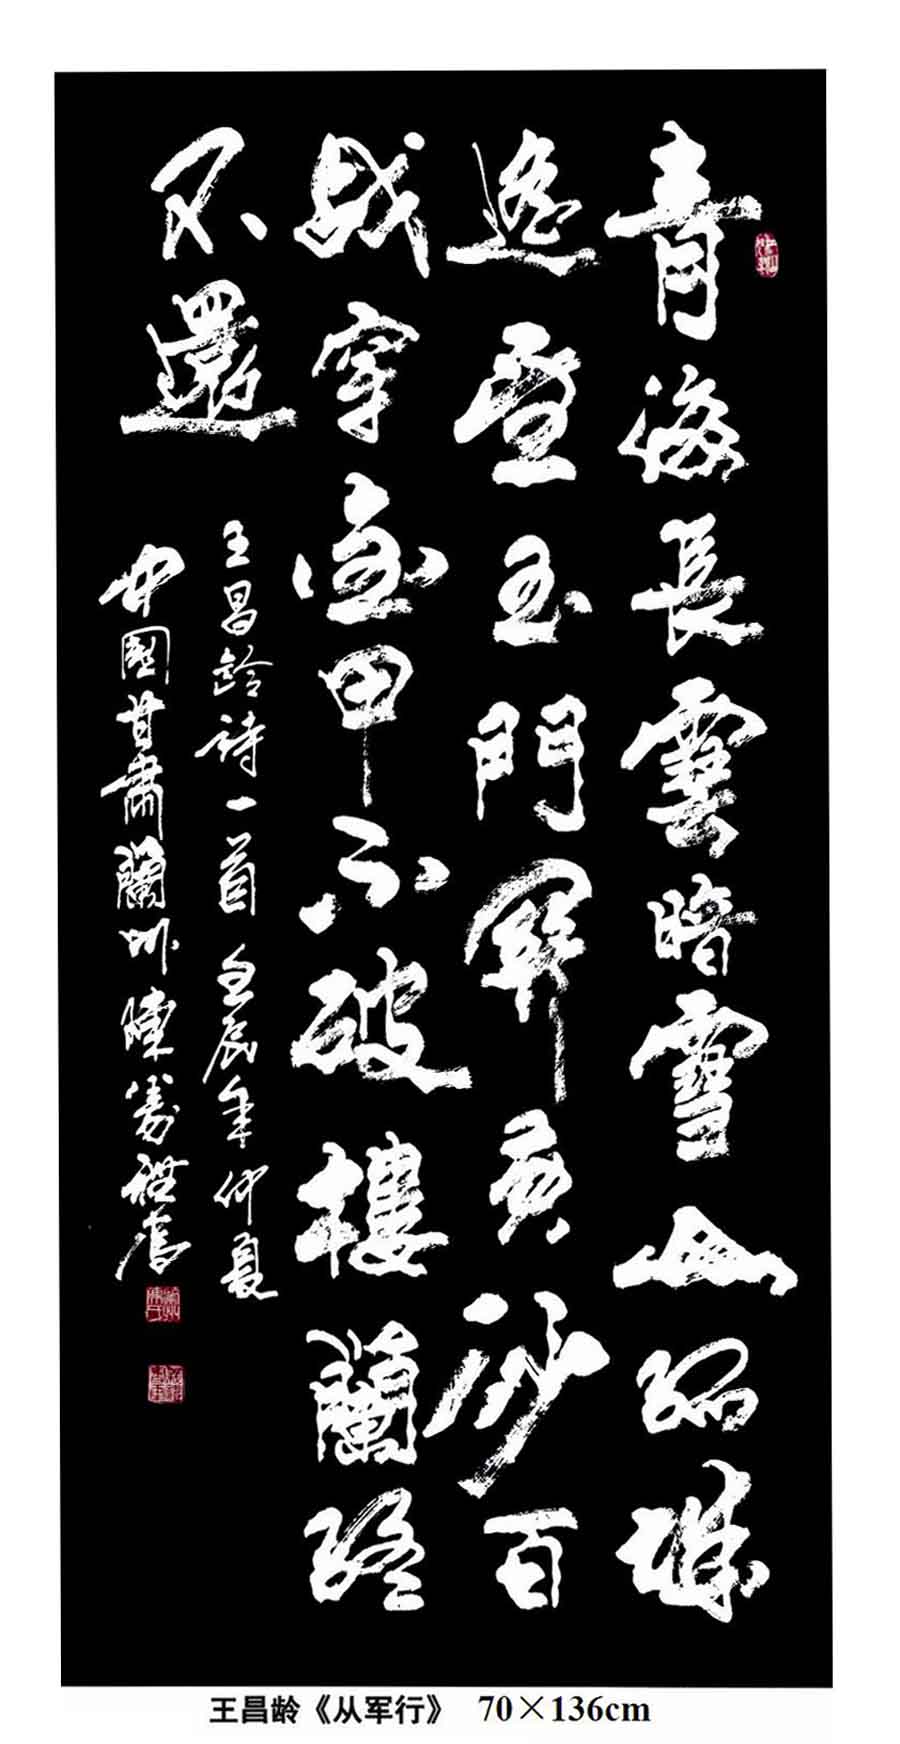 青海長雲暗雪山孤城
遙望玉門關黃沙百
战穿金甲不破樓蘭終
不還
王昌齡诗一首 壬辰年仲夏
中國甘肅蘭州陳
王昌龄《从军行》 70×136cm